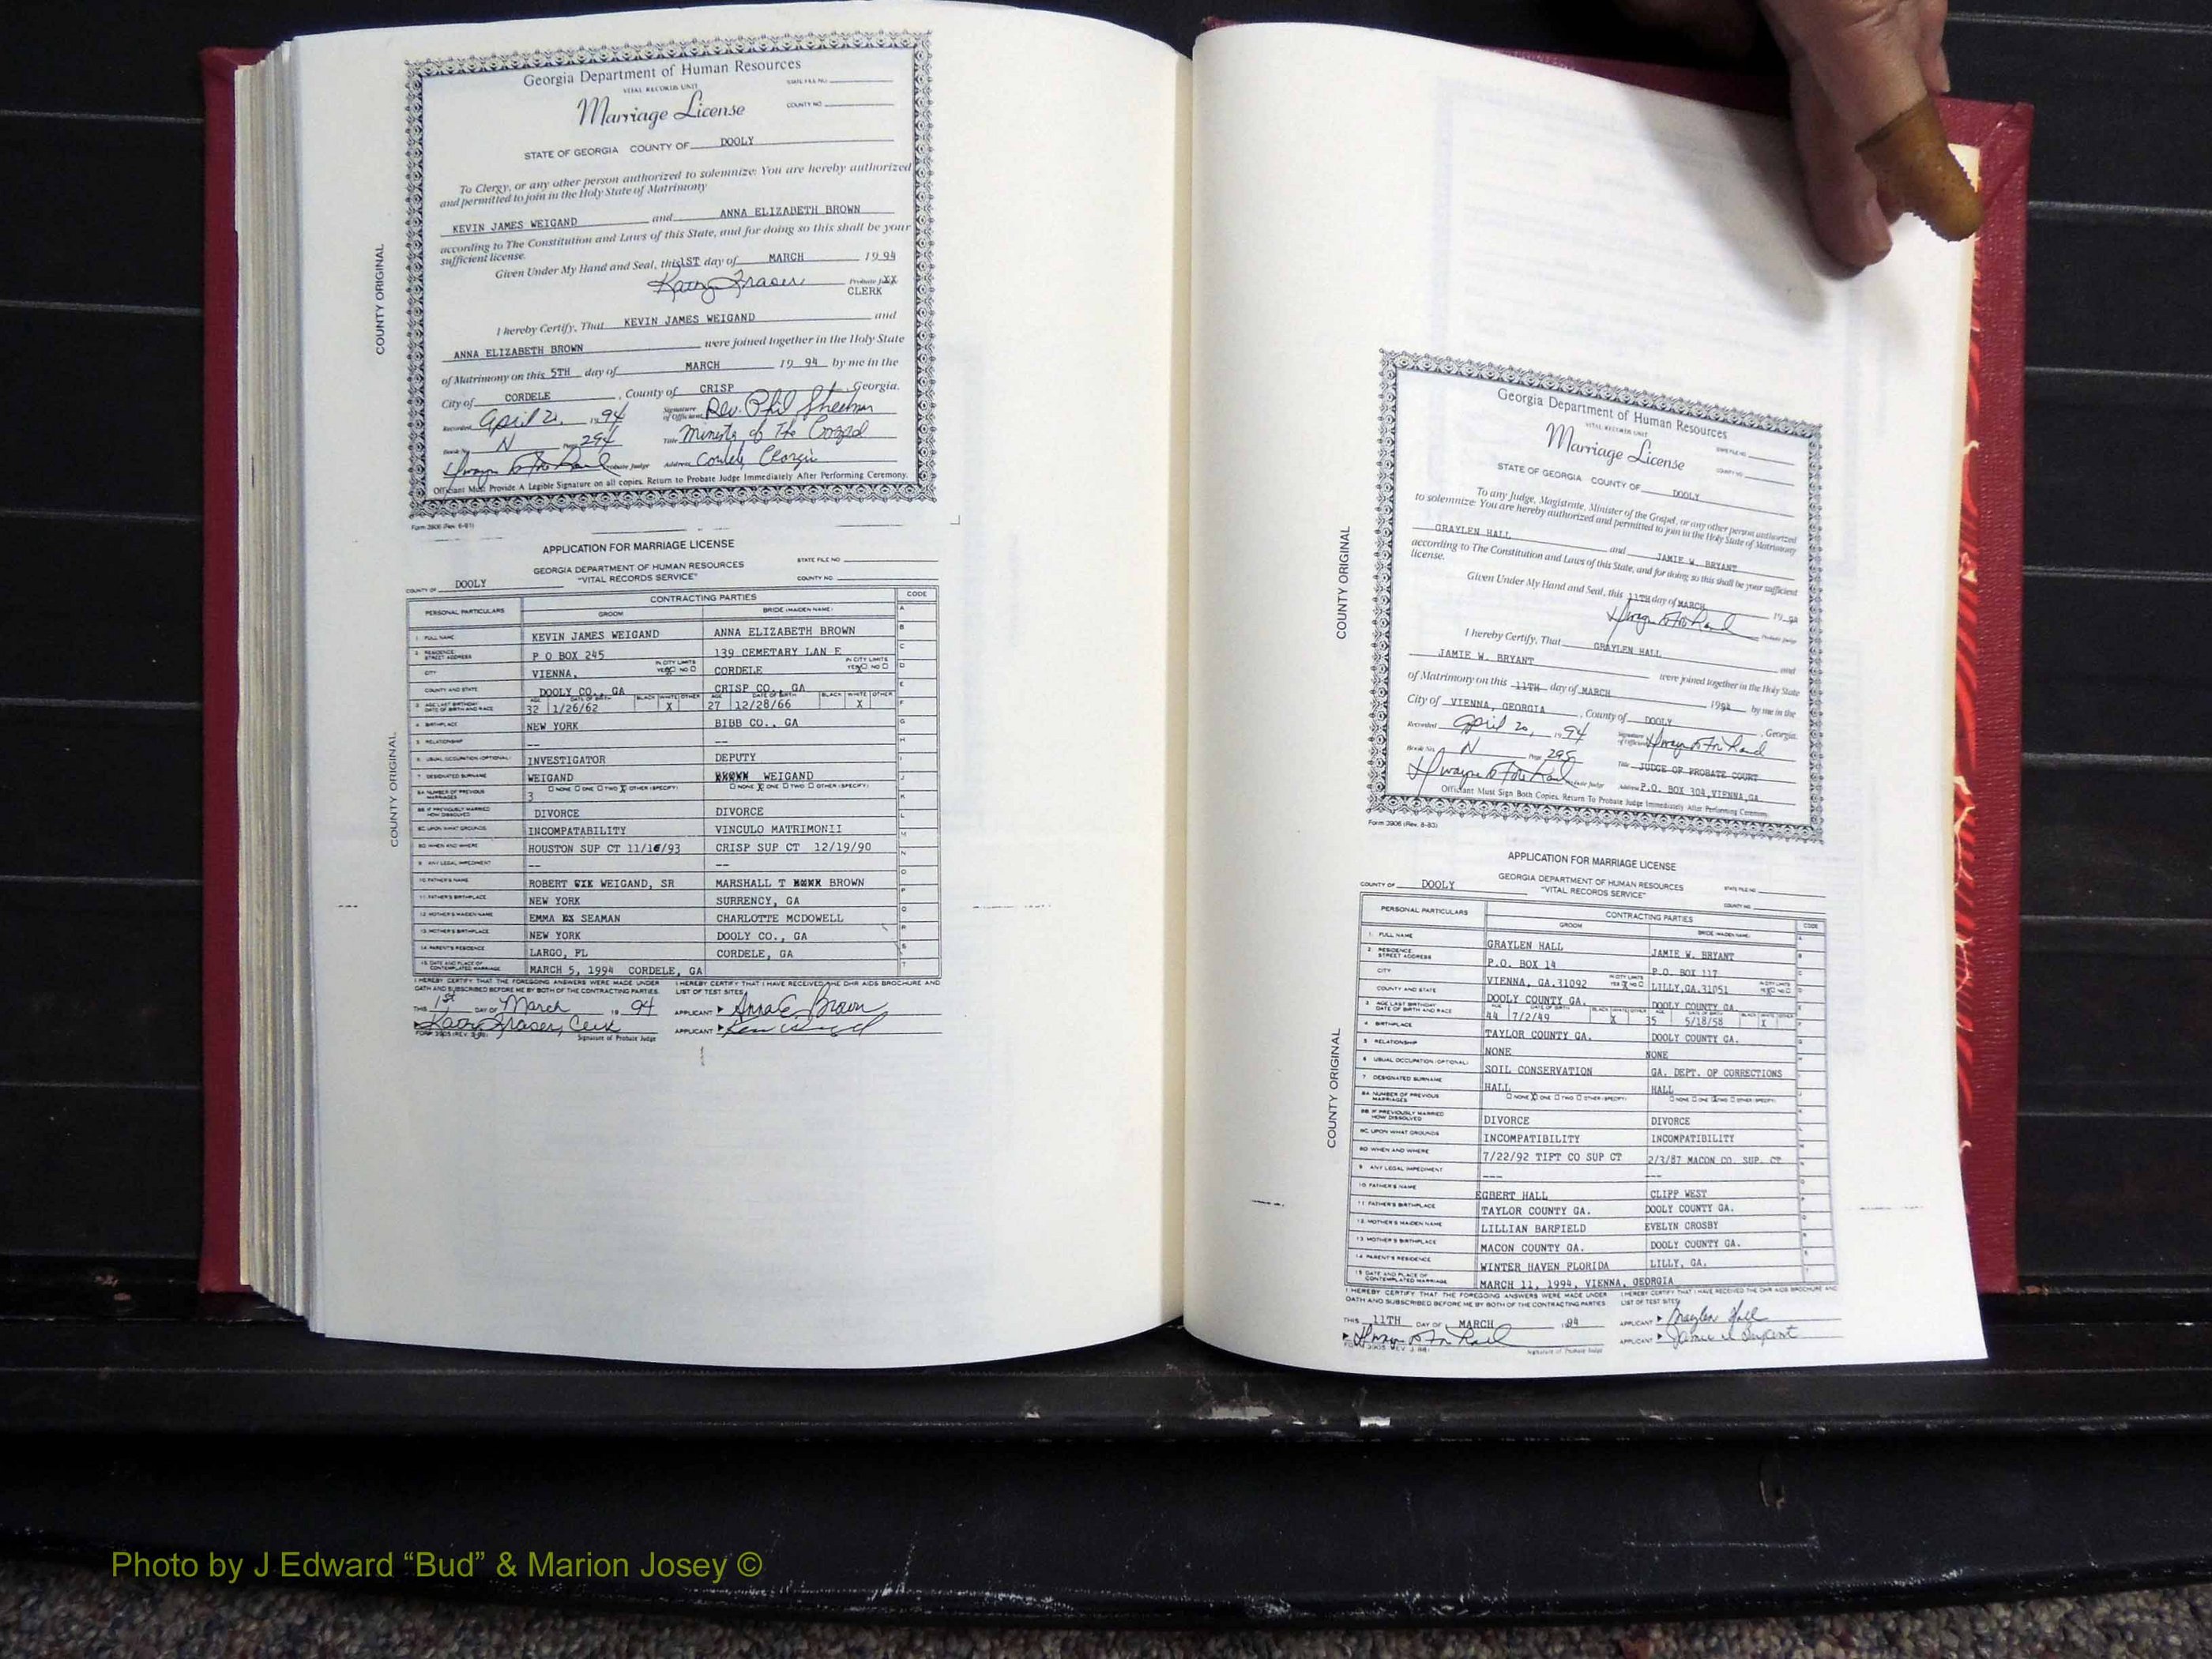 Georgia Department of Human Resources
VITAL RECORDS UNIT
STATE FILE NO.
Marriage License
COUNTY NO.
STATE OF GEORGIA COUNTY OF DOOLY
To Clergy, or any other person authorized to solemnize: You are hereby authorized
and permitted to join in the Holy State of Matrimony
KEVIN JAMES WEIGAND and ANNA ELIZABETH BROWN
according to The Constitution and Laws of this State, and for doing so this shall be your
sufficient license.
Given Under My Hand and Seal, this 1ST day of MARCH 19 94
Kathy Fraser Probate
CLERK
I hereby Certify, That KEVIN JAMES WEIGAND and
ANNA ELIZABETH BROWN were joined together in the Holy State
of Matrimony on this 5TH day of MARCH 19 94 by me in the
City of CORDELE, County of CRISP, Georgia.
Recorded April 20, 19 94 Signature of Officiant Rev. Phil Sheehan
Book No. N Page 294 Title Minister of The Gospel
Probate Judge Address Cordele, Georgia
Officiant Must Provide A Legible Signature on all copies. Return to Probate Judge Immediately After Performing Ceremony.
Form 3906 (Rev. 6-91)
COUNTY ORIGINAL
APPLICATION FOR MARRIAGE LICENSE
GEORGIA DEPARTMENT OF HUMAN RESOURCES
STATE FILE NO.
"VITAL RECORDS SERVICE"
COUNTY OF DOOLY
COUNTY NO.
COUNTY ORIGINAL
PERSONAL PARTICULARS CONTRACTING PARTIES CODE
GROOM BRIDE (MAIDEN NAME)
1. FULL NAME KEVIN JAMES WEIGAND ANNA ELIZABETH BROWN
2. RESIDENCE STREET ADDRESS P O BOX 245 139 CEMETARY LAN E
CITY VIENNA, IN CITY LIMITS YES NO CORDELE IN CITY LIMITS YES NO
COUNTY AND STATE DOOLY CO., GA CRISP CO., GA
3. AGE LAST BIRTHDAY DATE OF BIRTH AND RACE 32 1/26/62 X 27 12/28/66 X
4. BIRTHPLACE NEW YORK BIBB CO., GA
5. RELATIONSHIP -- --
6. USUAL OCCUPATION (OPTIONAL) INVESTIGATOR DEPUTY
7. DESIGNATED SURNAME WEIGAND WEIGAND
8A. NUMBER OF PREVIOUS MARRIAGES 3 NONE ONE TWO X OTHER (SPECIFY) NONE X ONE TWO OTHER (SPECIFY)
8B. IF PREVIOUSLY MARRIED HOW DISSOLVED DIVORCE DIVORCE
8C. UPON WHAT GROUNDS INCOMPATABILITY VINCULO MATRIMONII
8D. WHEN AND WHERE HOUSTON SUP CT 11/16/93 CRISP SUP CT 12/19/90
9. ANY LEGAL IMPEDIMENT -- --
10. FATHER'S NAME ROBERT WEIGAND, SR MARSHALL T BROWN
11. FATHER'S BIRTHPLACE NEW YORK SURRENCY, GA
12. MOTHER'S MAIDEN NAME EMMA SEAMAN CHARLOTTE MCDOWELL
13. MOTHER'S BIRTHPLACE NEW YORK DOOLY CO., GA
14. PARENT'S RESIDENCE LARGO, FL CORDELE, GA
15. DATE AND PLACE OF CONTEMPLATED MARRIAGE MARCH 5, 1994 CORDELE, GA
I HEREBY CERTIFY THAT THE FOREGOING ANSWERS WERE MADE UNDER
OATH AND SUBSCRIBED BEFORE ME BY BOTH OF THE CONTRACTING PARTIES.
I HEREBY CERTIFY THAT I HAVE RECEIVED THE DHR AIDS BROCHURE AND
LIST OF TEST SITES.
THIS 1st DAY OF March 19 94 APPLICANT Anna E Brown
Kathy Fraser, Clerk APPLICANT
FORM 3905 Signature of Probate Judge
Georgia Department of Human Resources
VITAL RECORDS UNIT
STATE FILE NO.
Marriage License
COUNTY NO.
STATE OF GEORGIA COUNTY OF DOOLY
To any Judge, Magistrate, Minister of the Gospel, or any other person authorized
to solemnize: You are hereby authorized and permitted to join in the Holy State of Matrimony
GRAYLEN HALL and JAMIE W. BRYANT
according to The Constitution and Laws of this State, and for doing so this shall be your sufficient
license.
Given Under My Hand and Seal, this 11TH day of MARCH 19 94
Probate Judge
I hereby Certify, That GRAYLEN HALL and
JAMIE W. BRYANT were joined together in the Holy State
of Matrimony on this 11TH day of MARCH 1994 by me in the
City of VIENNA, GEORGIA, County of DOOLY, Georgia.
Recorded April 20, 19 94 Signature of Officiant
Book No. N Page 295 Title JUDGE OF PROBATE COURT
Probate Judge Address P.O. BOX 304, VIENNA, GA
Officiant Must Sign Both Copies. Return To Probate Judge Immediately After Performing Ceremony.
Form 3906 (Rev. 8-83)
COUNTY ORIGINAL
APPLICATION FOR MARRIAGE LICENSE
GEORGIA DEPARTMENT OF HUMAN RESOURCES
STATE FILE NO.
"VITAL RECORDS SERVICE"
COUNTY OF DOOLY
COUNTY NO.
COUNTY ORIGINAL
PERSONAL PARTICULARS CONTRACTING PARTIES CODE
GROOM BRIDE (MAIDEN NAME)
1. FULL NAME GRAYLEN HALL JAMIE W. BRYANT
2. RESIDENCE STREET ADDRESS P.O. BOX 14 P.O. BOX 117
CITY VIENNA, GA.31092 IN CITY LIMITS YES X NO LILLY,GA.31051 IN CITY LIMITS YES NO
COUNTY AND STATE DOOLY COUNTY GA. DOOLY COUNTY GA.
3. AGE LAST BIRTHDAY DATE OF BIRTH AND RACE 44 7/2/49 X 35 5/18/58 X
4. BIRTHPLACE TAYLOR COUNTY GA. DOOLY COUNTY GA.
5. RELATIONSHIP NONE NONE
6. USUAL OCCUPATION (OPTIONAL) SOIL CONSERVATION GA. DEPT. OF CORRECTIONS
7. DESIGNATED SURNAME HALL HALL
8A. NUMBER OF PREVIOUS MARRIAGES NONE X ONE TWO OTHER (SPECIFY) NONE ONE X TWO OTHER (SPECIFY)
8B. IF PREVIOUSLY MARRIED HOW DISSOLVED DIVORCE DIVORCE
8C. UPON WHAT GROUNDS INCOMPATIBILITY INCOMPATIBILITY
8D. WHEN AND WHERE 7/22/92 TIFT CO SUP CT 2/3/87 MACON CO. SUP. CT
9. ANY LEGAL IMPEDIMENT --- ---
10. FATHER'S NAME EGBERT HALL CLIFF WEST
11. FATHER'S BIRTHPLACE TAYLOR COUNTY GA. DOOLY COUNTY GA.
12. MOTHER'S MAIDEN NAME LILLIAN BARFIELD EVELYN CROSBY
13. MOTHER'S BIRTHPLACE MACON COUNTY GA. DOOLY COUNTY GA.
14. PARENT'S RESIDENCE WINTER HAVEN FLORIDA LILLY, GA.
15. DATE AND PLACE OF CONTEMPLATED MARRIAGE MARCH 11, 1994, VIENNA, GEORGIA
I HEREBY CERTIFY THAT THE FOREGOING ANSWERS WERE MADE UNDER
OATH AND SUBSCRIBED BEFORE ME BY BOTH OF THE CONTRACTING PARTIES
I HEREBY CERTIFY THAT I HAVE RECEIVED THE DHR AIDS BROCHURE AND
LIST OF TEST SITES
THIS 11TH DAY OF MARCH 1994 APPLICANT Graylen Hall
APPLICANT Jamie W Bryant
Signature of Probate Judge
Photo by J Edward “Bud” & Marion Josey ©